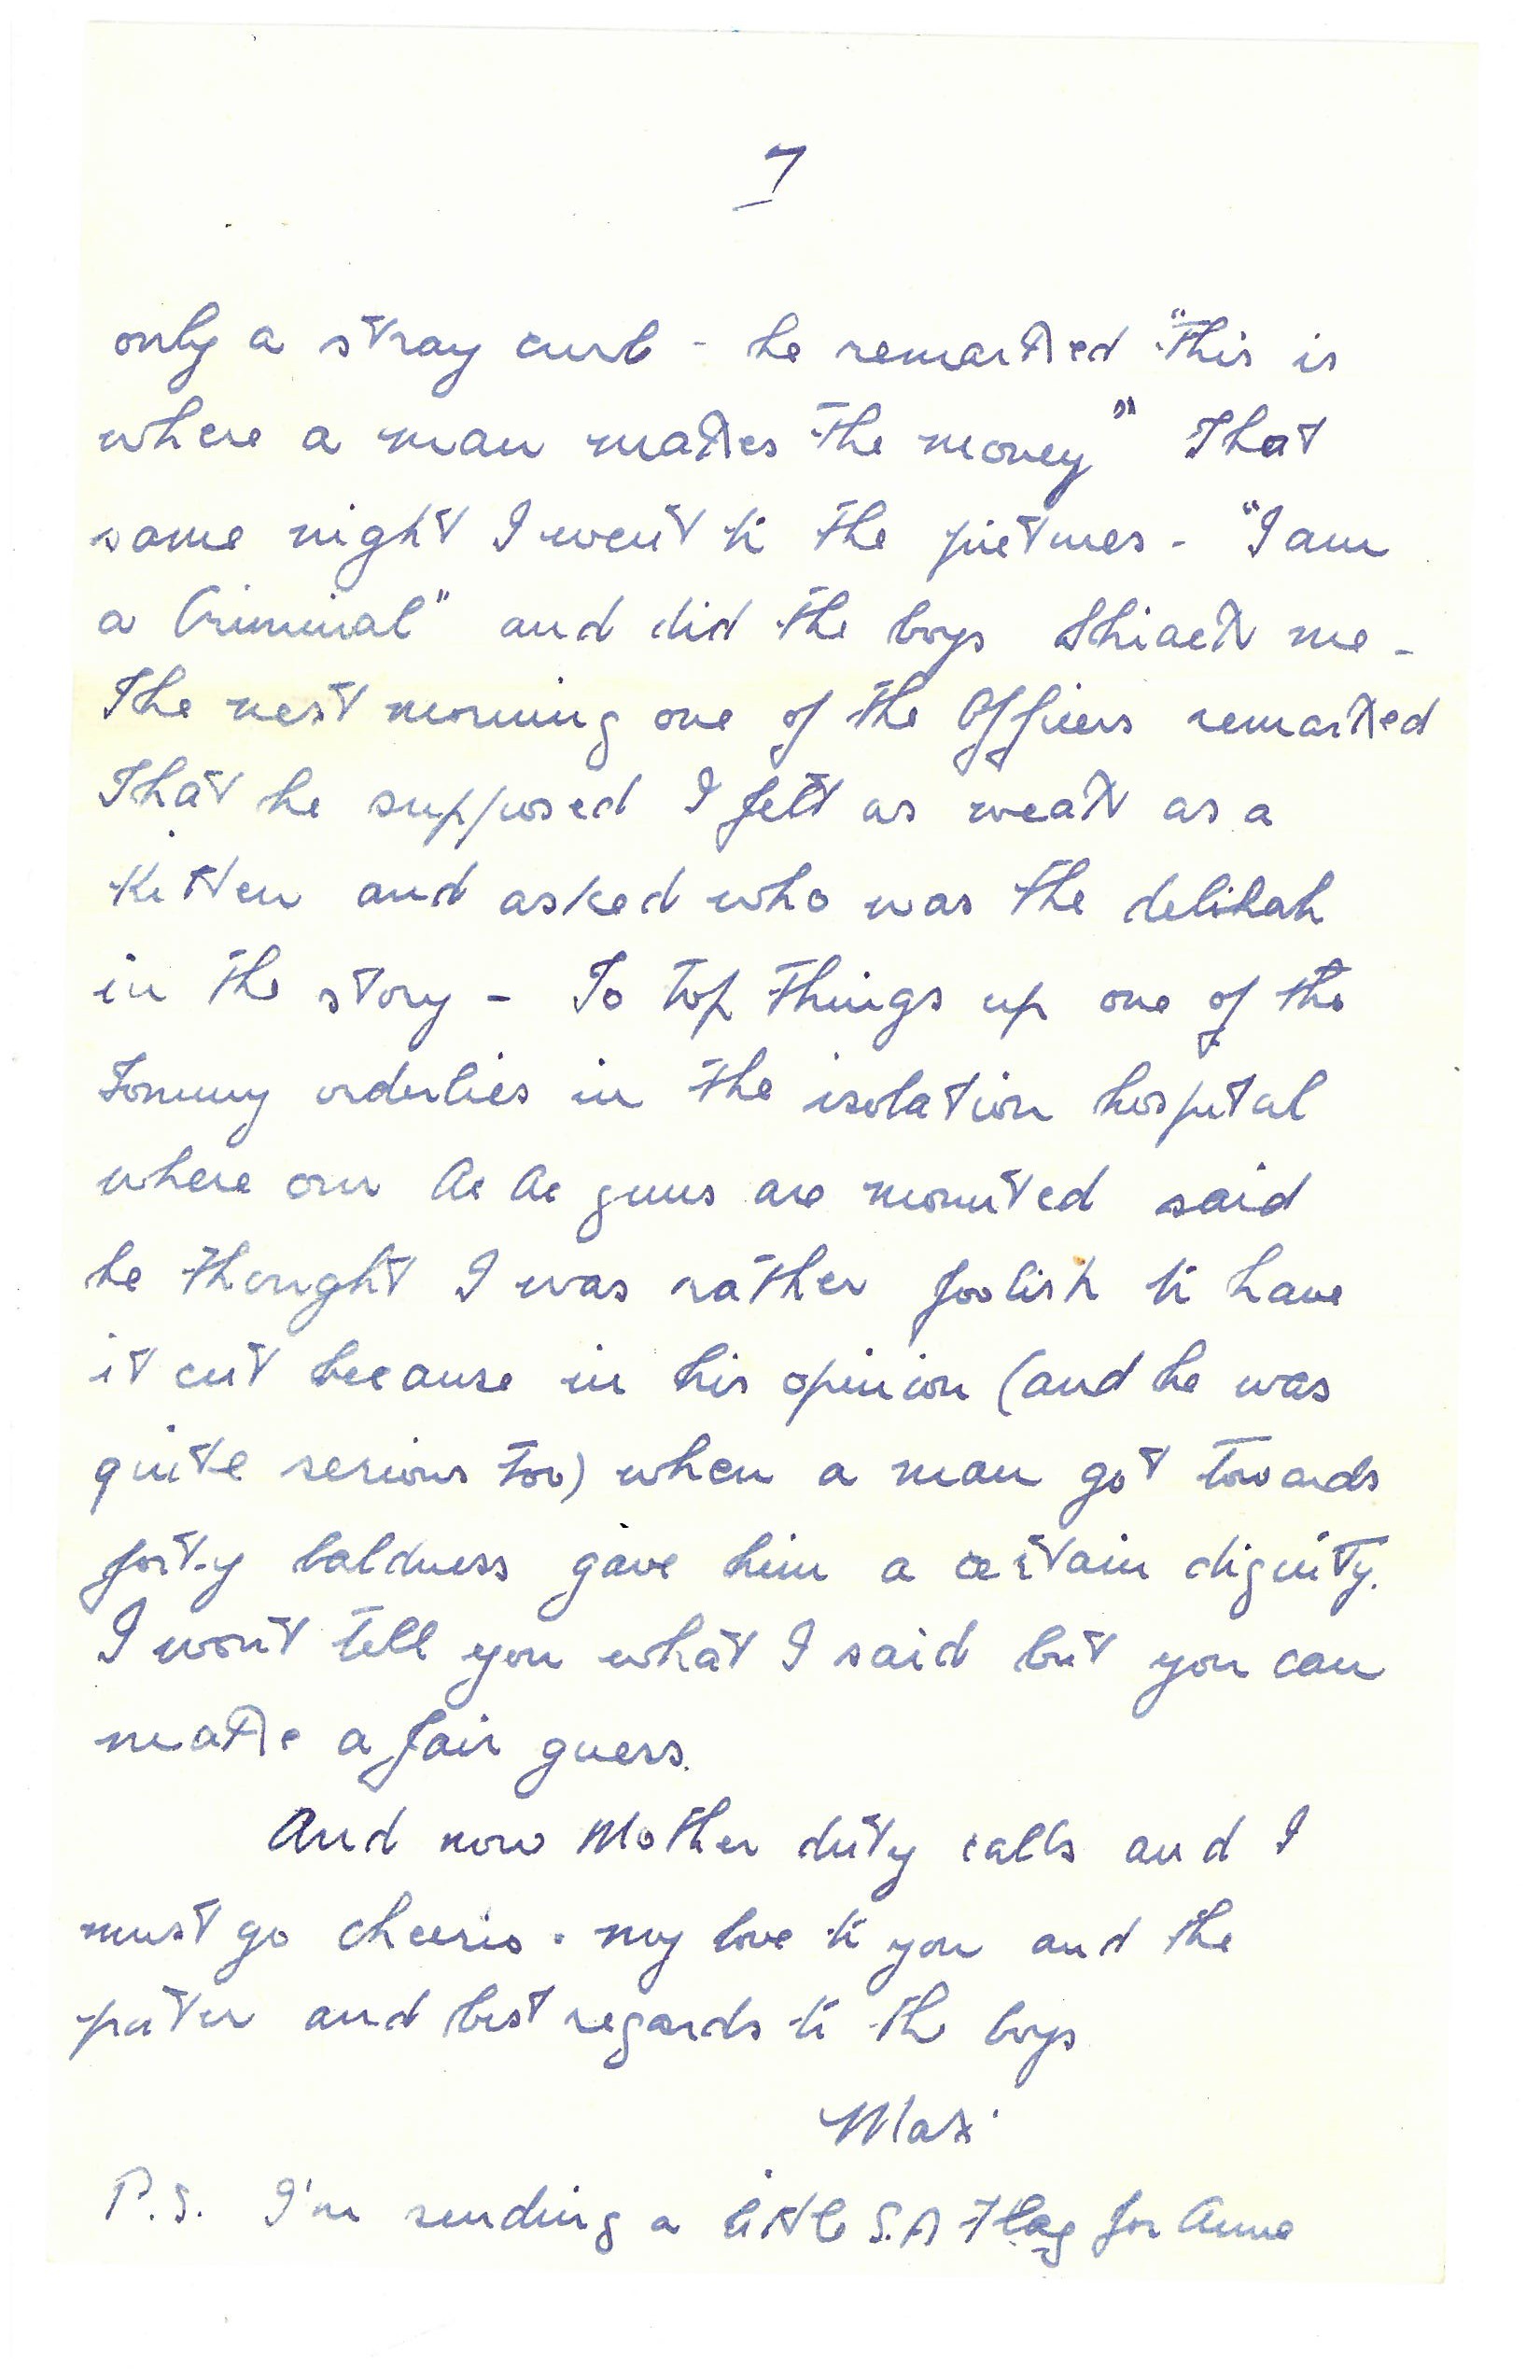 7
only a stray curl - he remarked "This is
where a man makes the money" That
same night I went to the pictures - "I am
a Criminal" and did the boys shiack me -
The next morning one of the Officers remarked
That he supposed I felt as weak as a
Kitten and asked who was the delilah
in the story - To top things up one of the
Tommy orderlies in the isolation hospital
where our Ac Ac guns are mounted said
he thought I was rather foolish to have
it cut because in his opinion (and he was
quite serious too) when a man got towards
forty baldness gave him a certain dignity.
I won't tell you what I said but you can
make a fair guess.
And now Mother duty calls and I
must go cheerio. my love to you and the
pater and best regards to the boys
Max
P.S. I'm sending a little S.A Flag for Anne